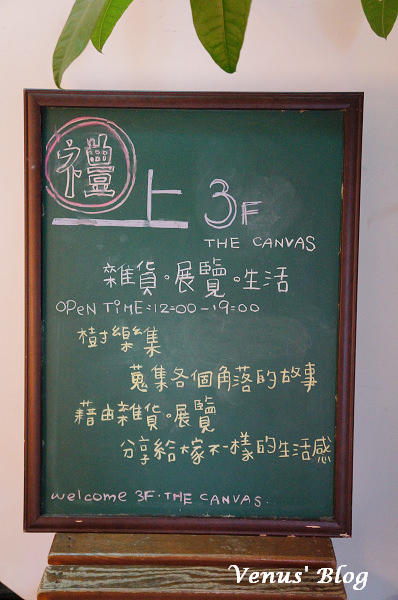 禮上 3F
THE CANVAS
雜貨。展覽。生活
OPEN TIME:12:00-19:00
樹樂集
蒐集各個角落的故事
藉由雜貨。展覽
分享給大家不一樣的生活感
welcome 3F·THE CANVAS.
Venus' Blog